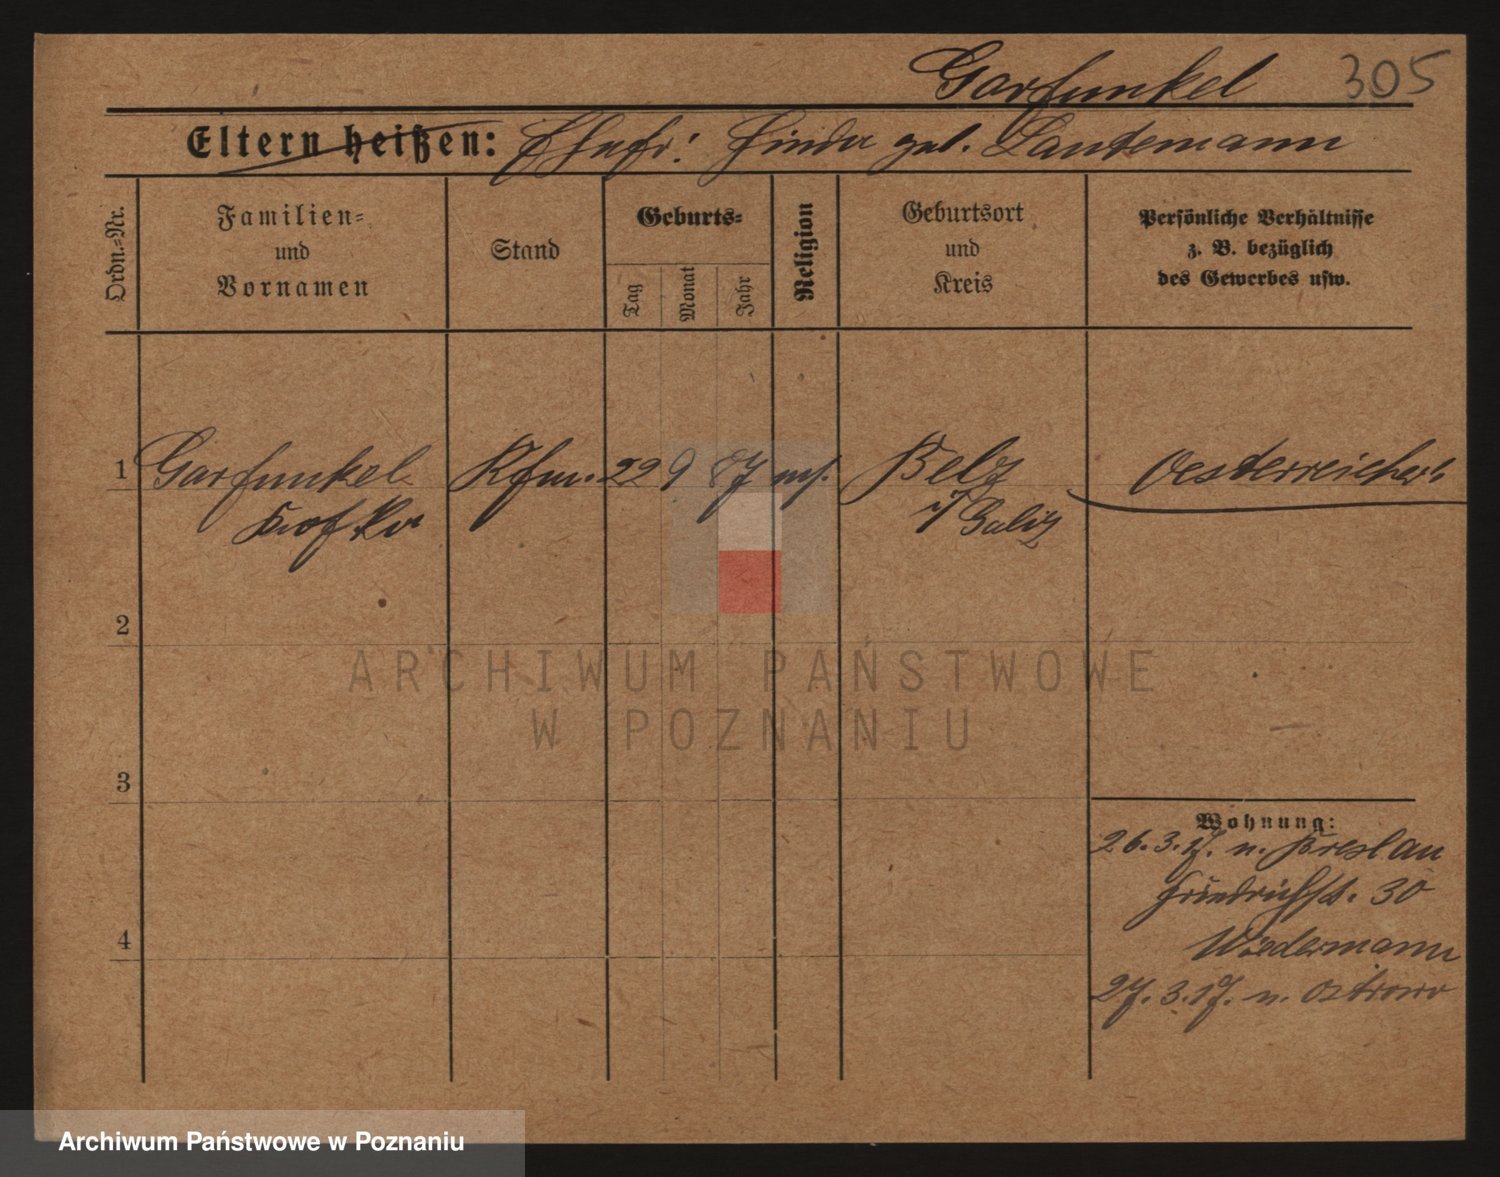 Garfunkel 305
Eltern heißen: Ehefr: Hinda geb. Lautemann
Ordn.=Nr.
Familien=
und
Vornamen
Stand
Geburts=
Tag
Monat
Jahr
Religion
Geburtsort
und
Kreis
Persönliche Verhältnisse
z. B. bezüglich
des Gewerbes usw.
1 Garfunkel Kfm. 22 9 87 ms. Belz Oesterreicher
i/ Galiz
2
3
4
Wohnung:
26.3.17. n. Breslau
Friedrichst. 30
Wiedermann
27.3.17. n. Ostrowo
ARCHIWUM PAŃSTWOWE
W POZNANIU
Archiwum Państwowe w Poznaniu